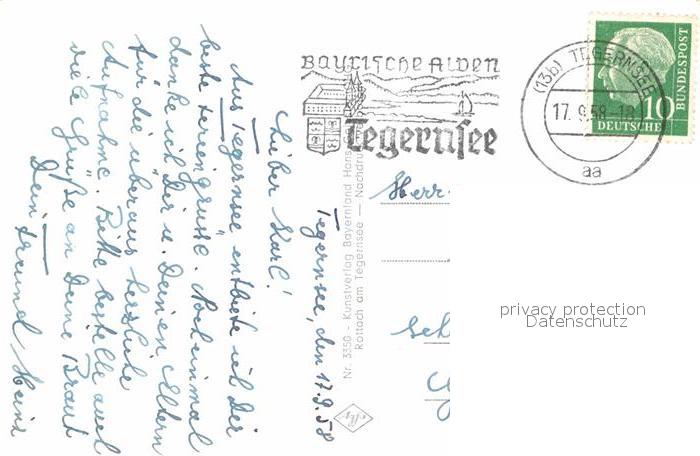 Tegernsee, den 17.9.58
Lieber Karl!
Aus Tegernsee entbiete ich Dir
beste Feriengrüsse. Nocheinmal
danke ich Dir u. Deinen Eltern
für die überaus herzliche
Aufnahme. Bitte bestelle auch
viele Grüße an Deine Braut
Dein Freund Heinz
Nr. 3350 - Kunstverlag Bayernland Hans
Rottach am Tegernsee — Nachdru
Bayrische Alpen
Tegernsee
(13b) TEGERNSEE
17.9.58-18
aa
10
DEUTSCHE
BUNDESPOST
Herr
privacy protection
Datenschutz